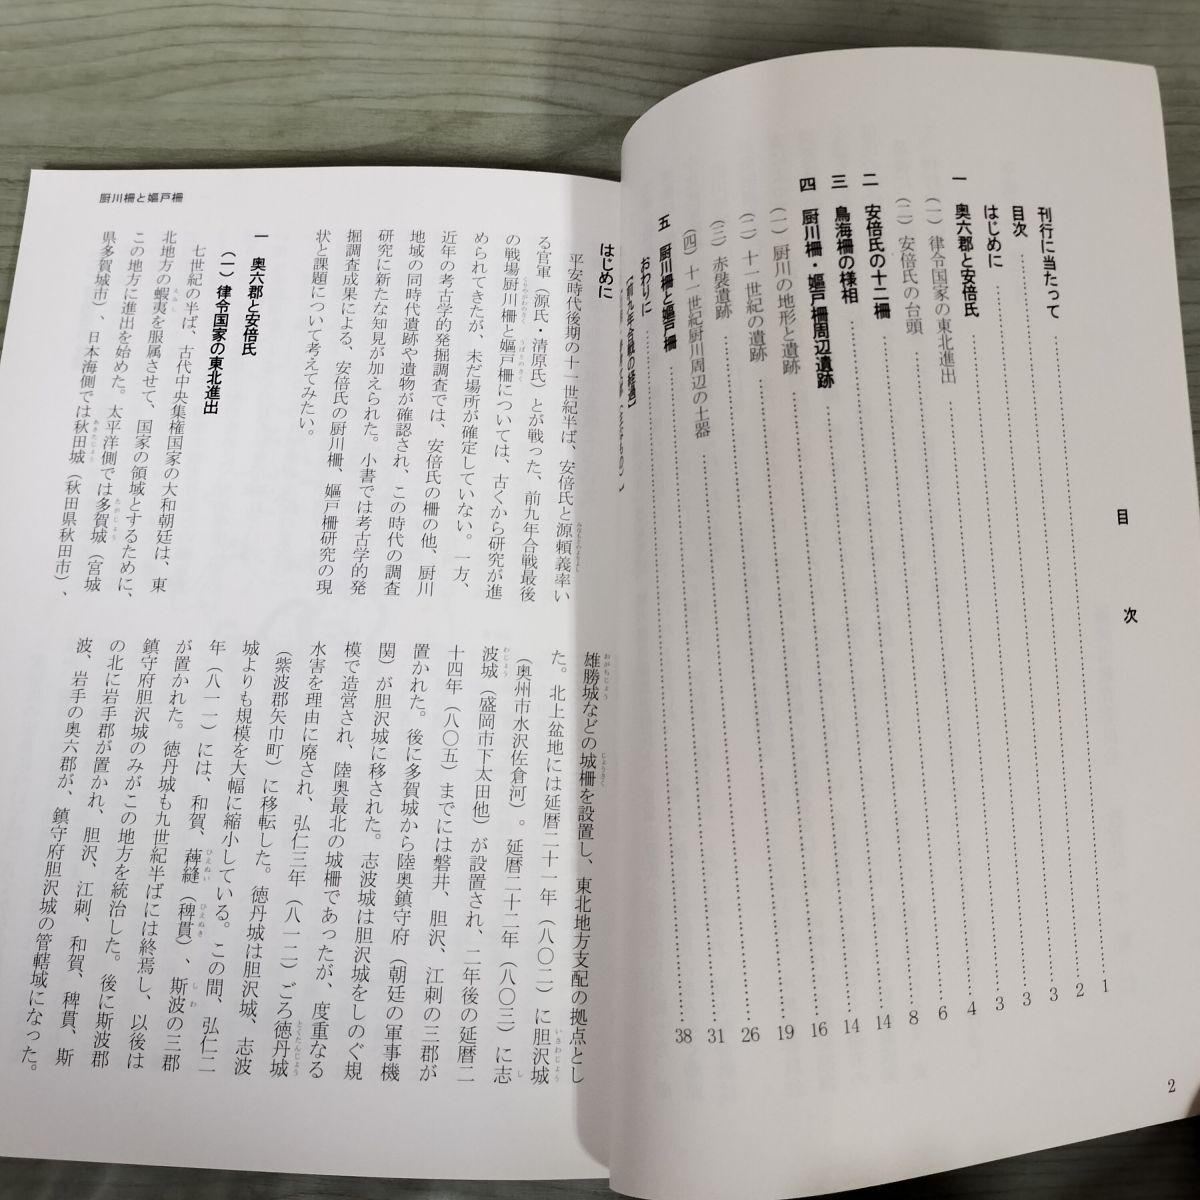 目次
刊行に当たって……1
目次……2
はじめに……3
一 奥六郡と安倍氏……3
(一) 律令国家の東北進出……3
(二) 安倍氏の台頭……4
二 安倍氏の十二柵……6
三 鳥海柵の様相……8
四 厨川柵・嫗戸柵周辺遺跡……14
(一) 厨川の地形と遺跡……14
(二) 十一世紀の遺跡……16
(三) 赤袰遺跡……19
(四) 十一世紀厨川周辺の土器……26
五 厨川柵と嫗戸柵……31
おわりに……38
【前九年合戦の経過】
2
厨川柵と嫗戸柵
はじめに
平安時代後期の十一世紀半ば、安倍氏と源頼義率い
る官軍（源氏・清原氏）とが戦った、前九年合戦最後
の戦場厨川柵と嫗戸柵については、古くから研究が進
められてきたが、未だ場所が確定していない。一方、
近年の考古学的発掘調査では、安倍氏の柵の他、厨川
地域の同時代遺跡や遺物が確認され、この時代の調査
研究に新たな知見が加えられた。小書では考古学的発
掘調査成果による、安倍氏の厨川柵、嫗戸柵研究の現
状と課題について考えてみたい。
一 奥六郡と安倍氏
(一) 律令国家の東北進出
七世紀の半ば、古代中央集権国家の大和朝廷は、東
北地方の蝦夷を服属させて、国家の領域とするために、
この地方に進出を始めた。太平洋側では多賀城（宮城
県多賀城市）、日本海側では秋田城（秋田県秋田市）、
雄勝城などの城柵を設置し、東北地方支配の拠点とし
た。北上盆地には延暦二十一年（八〇二）に胆沢城
（奥州市水沢佐倉河）。延暦二十二年（八〇三）に志
波城（盛岡市下太田他）が設置され、二年後の延暦二
十四年（八〇五）までには磐井、胆沢、江刺の三郡が
置かれた。後に多賀城から陸奥鎮守府（朝廷の軍事機
関）が胆沢城に移された。志波城は胆沢城をしのぐ規
模で造営され、陸奥最北の城柵であったが、度重なる
水害を理由に廃され、弘仁三年（八一二）ごろ徳丹城
（紫波郡矢巾町）に移転した。徳丹城は胆沢城、志波
城よりも規模を大幅に縮小している。この間、弘仁二
年（八一一）には、和賀、薭縫（稗貫）、斯波の三郡
が置かれた。徳丹城も九世紀半ばには終焉し、以後は
鎮守府胆沢城のみがこの地方を統治した。後に斯波郡
の北に岩手郡が置かれ、胆沢、江刺、和賀、稗貫、斯
波、岩手の奥六郡が、鎮守府胆沢城の管轄域になった。